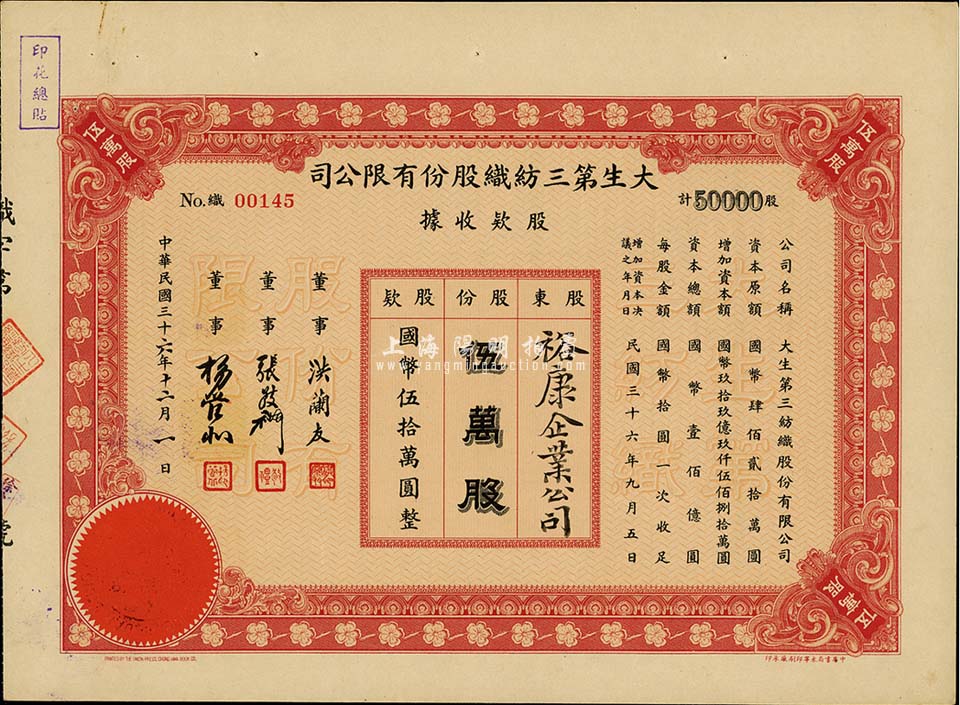 印花總貼
伍萬股
伍萬股
大生第三紡織股份有限公司
計50000股
No. 織 00145
股欵收據
公司名稱 大生第三紡織股份有限公司
資本原額 國幣肆佰貳拾萬圓
增加資本額 國幣玖拾玖億玖仟伍佰捌拾萬圓
資本總額 國幣壹佰億圓
每股金額 國幣拾圓一次收足
增加資本決議之年月日 民國三十六年九月五日
股東 裕康企業公司
股份 伍萬股
股欵 國幣伍拾萬圓整
董事 洪蘭友
董事 張敬禮
董事 楊管北
中華民國三十六年十二月一日
伍萬股
上海陽明拍賣
www.yangmingauction.com
PRINTED BY THE UNION PRESS, CHUNG HWA BOOK CO.
中華書局永寧印刷廠承印